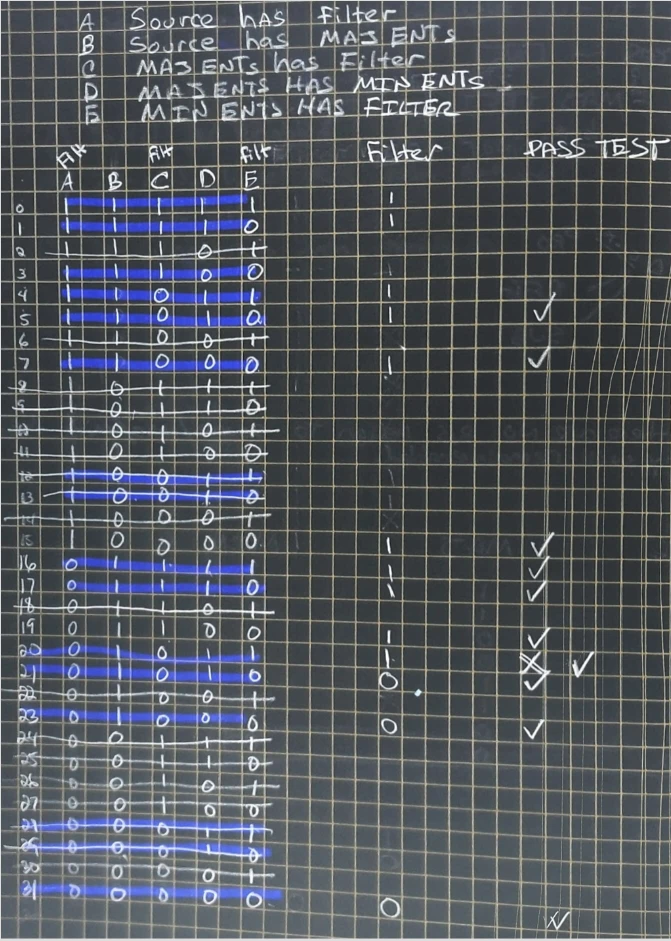 A Source hAS filter
B Source has MAJ ENTs
C MAJ ENTs has Filter
D MAJ ENTS HAS MIN ENTs
E MIN ENTs HAS FILTER
Filt Filt Filt Filter PASS TEST
A B C D E
0 1 1 1 1 1 1
1 1 1 1 1 0 1
2 1 1 1 0 1
3 1 1 1 0 0
4 1 1 0 1 1 1
5 1 1 0 1 0 1 ✓
6 1 1 0 0 1
7 1 1 0 0 0 1 ✓
8 1 0 1 1 1
9 1 0 1 1 0
10 1 0 1 0 1
11 1 0 1 0 0
12 1 0 0 1 1
13 1 0 0 1 0
14 1 0 0 0 1
15 1 0 0 0 0 1 ✓
16 0 1 1 1 1 1 ✓
17 0 1 1 1 0 1 ✓
18 0 1 1 0 1
19 0 1 1 0 0 1 ✓
20 0 1 0 1 1 1 ✓
21 0 1 0 1 0 0 ✓
22 0 1 0 0 1
23 0 1 0 0 0 0 ✓
24 0 0 1 1 1
25 0 0 1 1 0
26 0 0 1 0 1
27 0 0 1 0 0
0 0 0 1 1
29 0 0 0 1 0
30 0 0 0 0 1
31 0 0 0 0 0 0